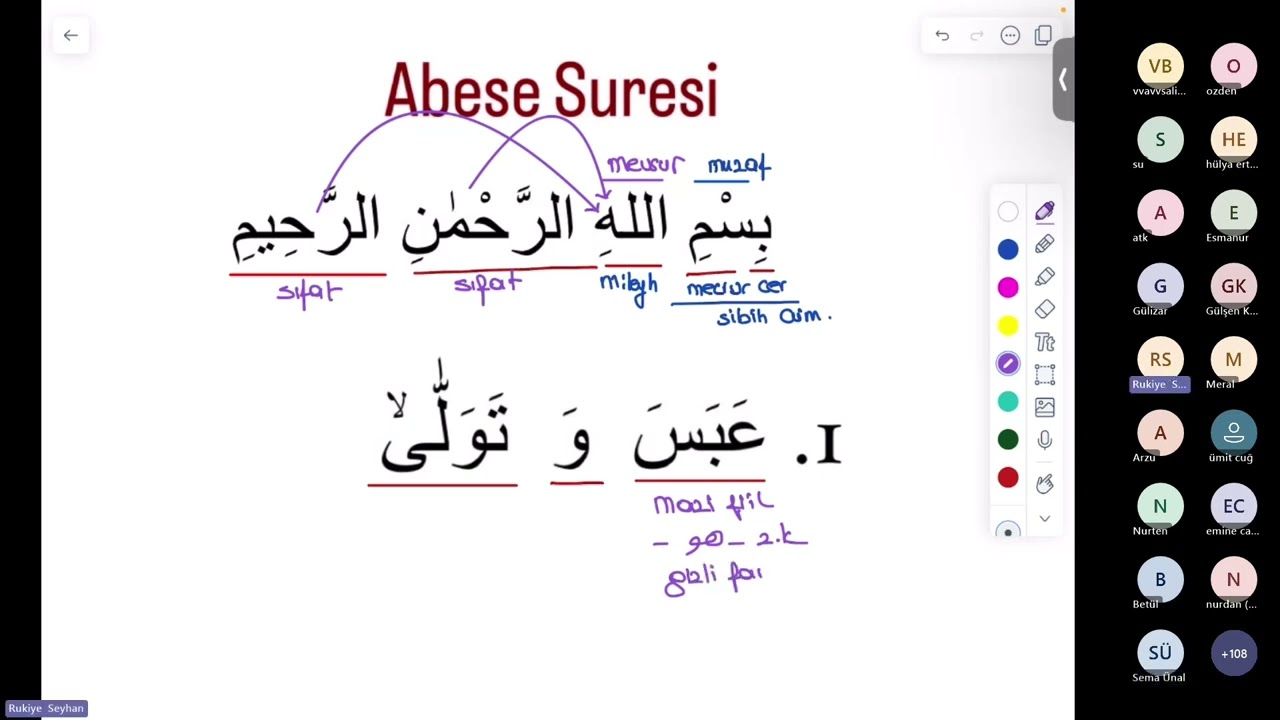 Abese Suresi
mevsuf muzaf
بِسْمِ اللهِ الرَّحْمٰنِ الرَّحِيمِ
sıfat sıfat mileyh mecrur cer
sibih
1. عَبَسَ وَ تَوَلّٰىۙ
Mazi fiil
- هو - z.k
gizli fai
VB O
vvavvsali... ozden
S HE
su hülya ert...
A E
atk Esmanur
G GK
Gülizar Gülşen K...
RS M
Rukiye S... Meral
A
Arzu ümit cuğ
N EC
Nurten emine ca...
B N
Betül nurdan (...
SÜ +108
Sema Ünal
Rukiye Seyhan
Tt